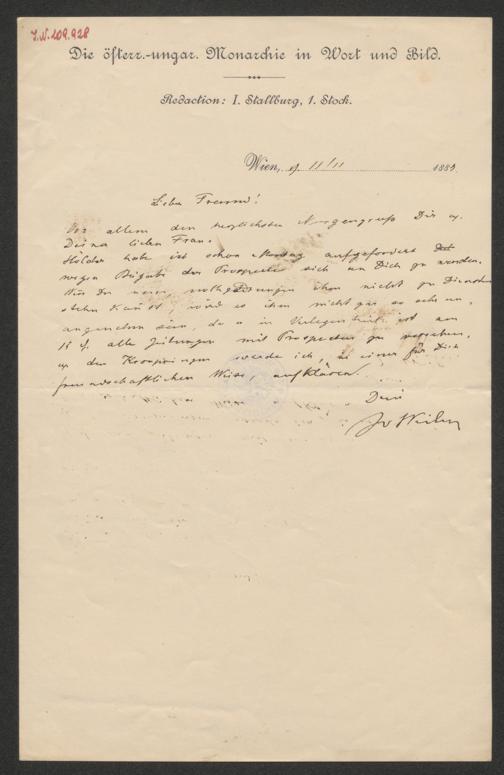 J.N. 109.928
Die österr.-ungar. Monarchie in Wort und Bild.
Redaction: I. Stallburg, 1. Stock.
Wien, 11/11 188
Lieber Freund!
Vor allem den herzlichsten Morgengruß Dir u.
Deiner lieben Frau.
Hölder habe ich schon Montag aufgefordert
wegen Beigabe der Prospecte sich an Dich zu wenden.
Du ihm nicht zu Diensten
stehen kannst, wird es ihm nicht gar so sehr
angenehm sein, da er in Verlegenheit ist am
15 d. alle Zeitungen mit Prospecten zu versehen.
werde ich, in einer für Dich
freundschaftlichen Weise aufklären.
Dein
Jv Weilen